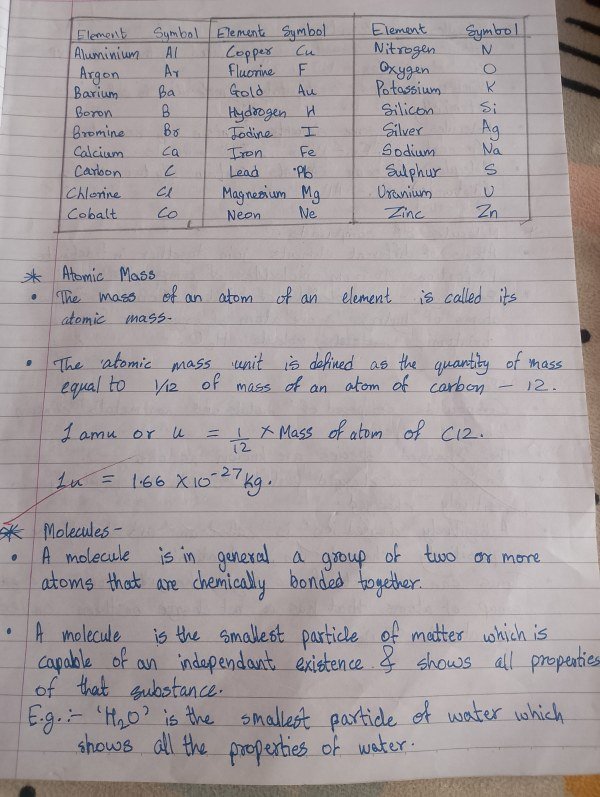 Element Symbol Element Symbol Element Symbol
Aluminium Al Copper Cu Nitrogen N
Argon Ar Fluorine F Oxygen O
Barium Ba Gold Au Potassium K
Boron B Hydrogen H Silicon Si
Bromine Br Iodine I Silver Ag
Calcium Ca Iron Fe Sodium Na
Carbon C Lead Pb Sulphur S
Chlorine Cl Magnesium Mg Uranium U
Cobalt Co Neon Ne Zinc Zn
* Atomic Mass
• The mass of an atom of an element is called its
atomic mass.
• The atomic mass unit is defined as the quantity of mass
equal to 1/12 of mass of an atom of carbon - 12.
1 amu or u = 1/12 × Mass of atom of C12.
1u = 1.66 × 10⁻²⁷ kg.
* Molecules -
• A molecule is in general a group of two or more
atoms that are chemically bonded together.
• A molecule is the smallest particle of matter which is
capable of an independant existence & shows all properties
of that substance.
E.g. :- 'H₂O' is the smallest particle of water which
shows all the properties of water.